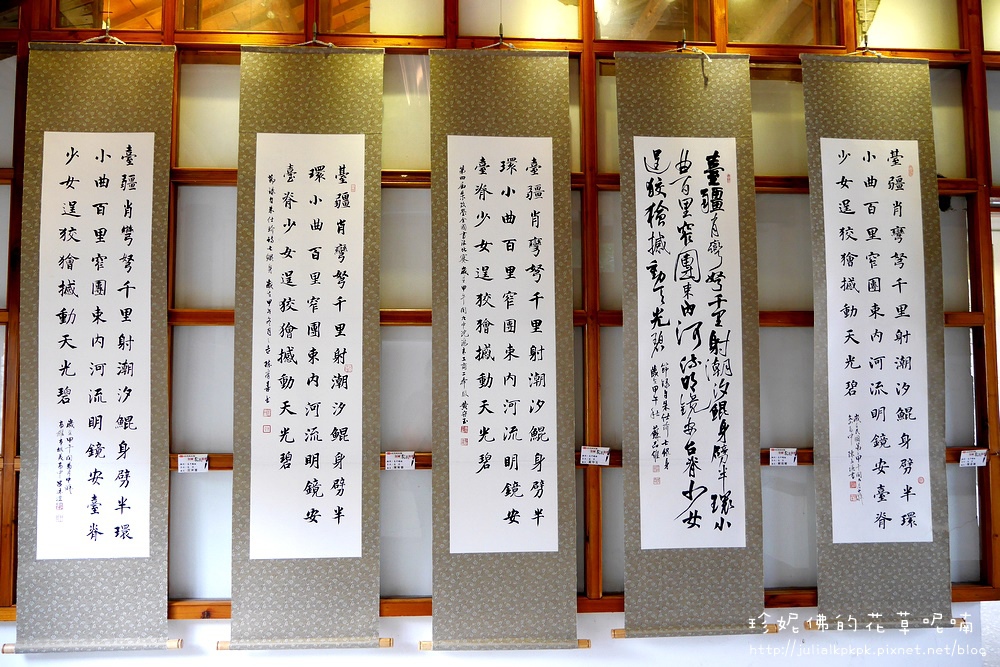 臺疆肖彎弩千里射潮汐鯤身劈半環
小曲百里窄團東內河流明鏡安臺脊
少女逞狡獪撼動天光碧
臺疆肖彎弩千里射潮汐鯤身劈半環小
曲百里窄團東內河流明鏡安台脊少女
逞狡獪撼動天光碧
節錄自朱仕玠七鯤身
歲次甲午秋
臺疆肖彎弩千里射潮汐鯤身劈半
環小曲百里窄團東內河流明鏡安
臺脊少女逞狡獪撼動天光碧
臺疆肖彎弩千里射潮汐鯤身劈半
環小曲百里窄團東內河流明鏡安
臺脊少女逞狡獪撼動天光碧
臺疆肖彎弩千里射潮汐鯤身劈半環
小曲百里窄團東內河流明鏡安臺脊
少女逞狡獪撼動天光碧
珍妮佛的花草呢喃
http://julielkpkpk.pixnet.net/blog